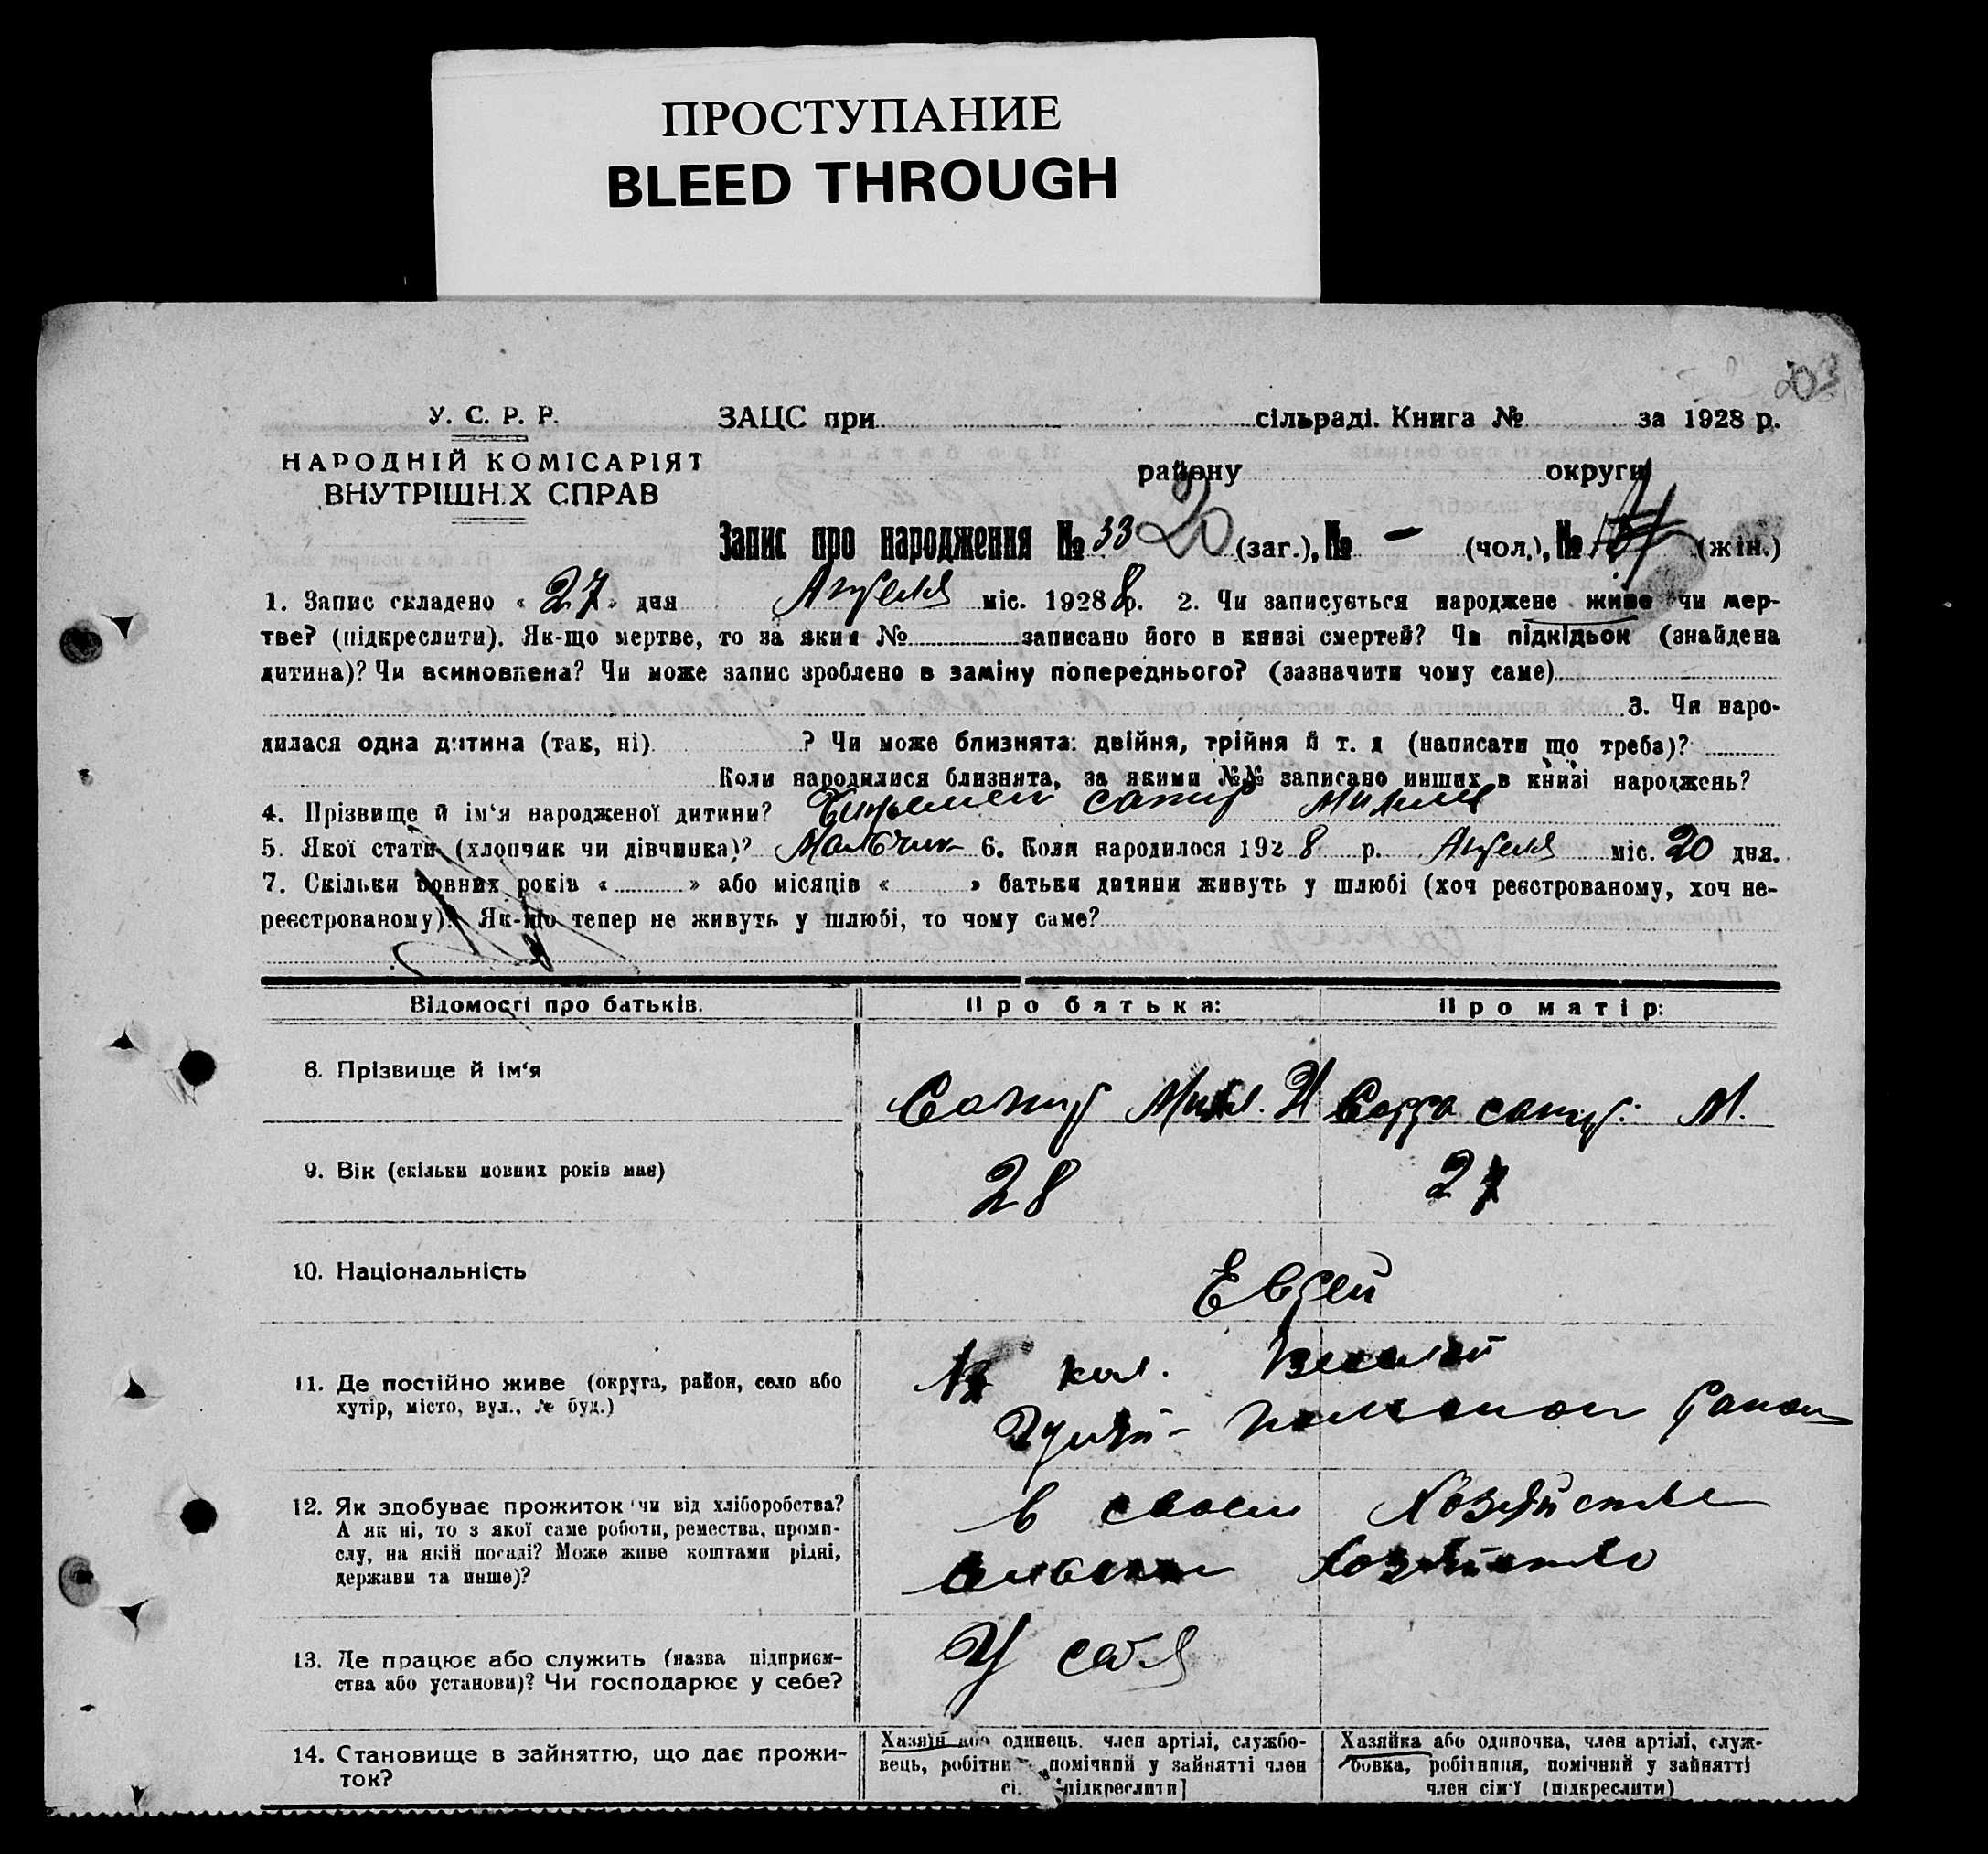 ПРОСТУПАНИЕ
BLEED THROUGH
203
У. С. Р. Р.
ЗАЦС при сільраді. Книга № за 1928 р.
НАРОДНІЙ КОМІСАРІЯТ
ВНУТРІШНІХ СПРАВ
району округи
Запис про народження № 33 20 (заг.), № – (чол.), № (жін.)
1. Запис складено « 27 » дня Апреля міс. 1928 8 р. 2. Чи записується народжене живе чи мер-
тве? (підкреслити). Як-що мертве, то за яким № записано його в книзі смертей? Чи підкідьок (знайдена
дитина)? Чи всиновлена? Чи може запис зроблено в заміну попереднього? (зазначити чому саме)
3. Чи наро-
дилася одна дитина (так, ні) ? Чи може близнята: двійня, трійня й т. д (написати що треба)?
Коли народилися близнята, за якими №№ записано инших в книзі народжень?
4. Прізвище й ім‘я народженої дитини? Сапир
5. Якої стати (хлопчик чи дівчинка)? Мальчик 6. Коли народилося 192 8 р. Апреля міс. 20 дня.
7. Скільки повних років « » або місяців « » батьки дитини живуть у шлюбі (хоч реєстрованому, хоч не-
реєстрованому)? Як-що тепер не живуть у шлюбі, то чому саме?
Відомості про батьків. Про батька: Про матір:
8. Прізвище й ім‘я Сапир Сарра сапир. М.
9. Вік (скільки повних років має) 28 27
10. Національність Еврей
11. Де постійно живе (округа, район, село або
хутір, місто, вул., № буд.)
кол.
район
12. Як здобуває прожиток чи від хліборобства?
А як ні, то з якої саме роботи, ремества, проми-
слу, на якій посаді? Може живе коштами рідні,
держави та инше)?
в своем хозяйстве
сельское хозяйство
13. Де працює або служить (назва підприєм-
ства або установи)? Чи господарює у себе?
У себя
14. Становище в зайняттю, що дає прожи-
ток?
Хазяїн або одинець, член артілі, службо-
вець, робітник, помічний у зайнятті член
сі. [підкреслити]
Хазяйка або одиночка, член артілі, служ-
бовка, робітниця, помічний у зайнятті
член сім‘ї (підкреслити)